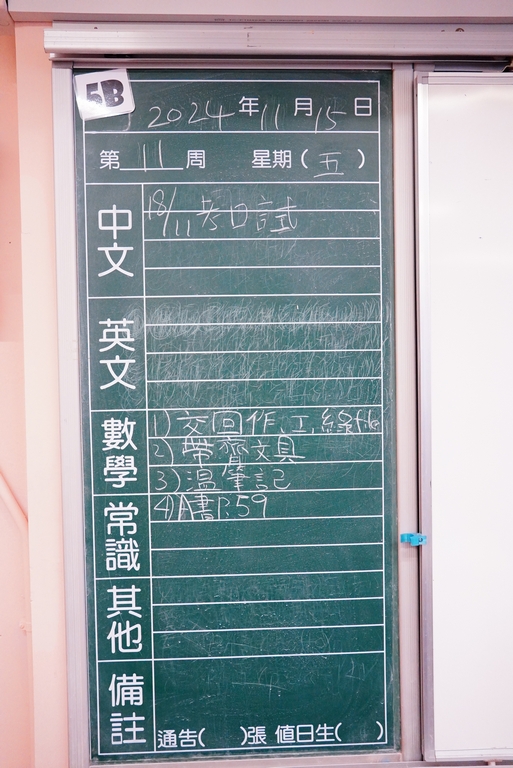 5B
2024年11月15日
第11周 星期(五)
中文
18/11 考口試
英文
數學
1) 交回作、工、綠file
2) 帶齊文具
3) 溫筆記
常識
4) A書P.59
其他
備註
通告( )張 值日生( )